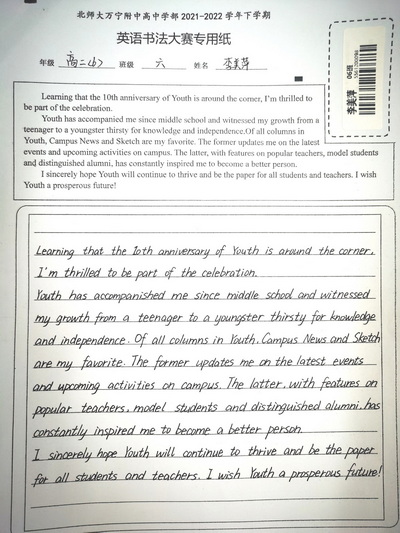 北师大万宁附中高中学部2021-2022学年下学期
英语书法大赛专用纸
年级 高二(6) 班级 六 姓名 李美萍
李美萍 06班
Learning that the 10th anniversary of Youth is around the corner, I'm thrilled to
be part of the celebration.
Youth has accompanied me since middle school and witnessed my growth from a
teenager to a youngster thirsty for knowledge and independence.Of all columns in
Youth, Campus News and Sketch are my favorite. The former updates me on the latest
events and upcoming activities on campus. The latter, with features on popular teachers, model students
and distinguished alumni, has constantly inspired me to become a better person.
I sincerely hope Youth will continue to thrive and be the paper for all students and teachers. I wish
Youth a prosperous future!
Learning that the 10th anniversary of Youth is around the corner,
I'm thrilled to be part of the celebration.
Youth has accompanished me since middle school and witnessed
my growth from a teenager to a youngster thirsty for knowledge
and independence. Of all columns in Youth, Campus News and Sketch
are my favorite. The former updates me on the latest events
and upcoming activities on campus. The latter, with features on
popular teachers, model students and distinguished alumni, has
constantly inspired me to become a better person.
I sincerely hope Youth will continue to thrive and be the paper
for all students and teachers. I wish Youth a prosperous future!